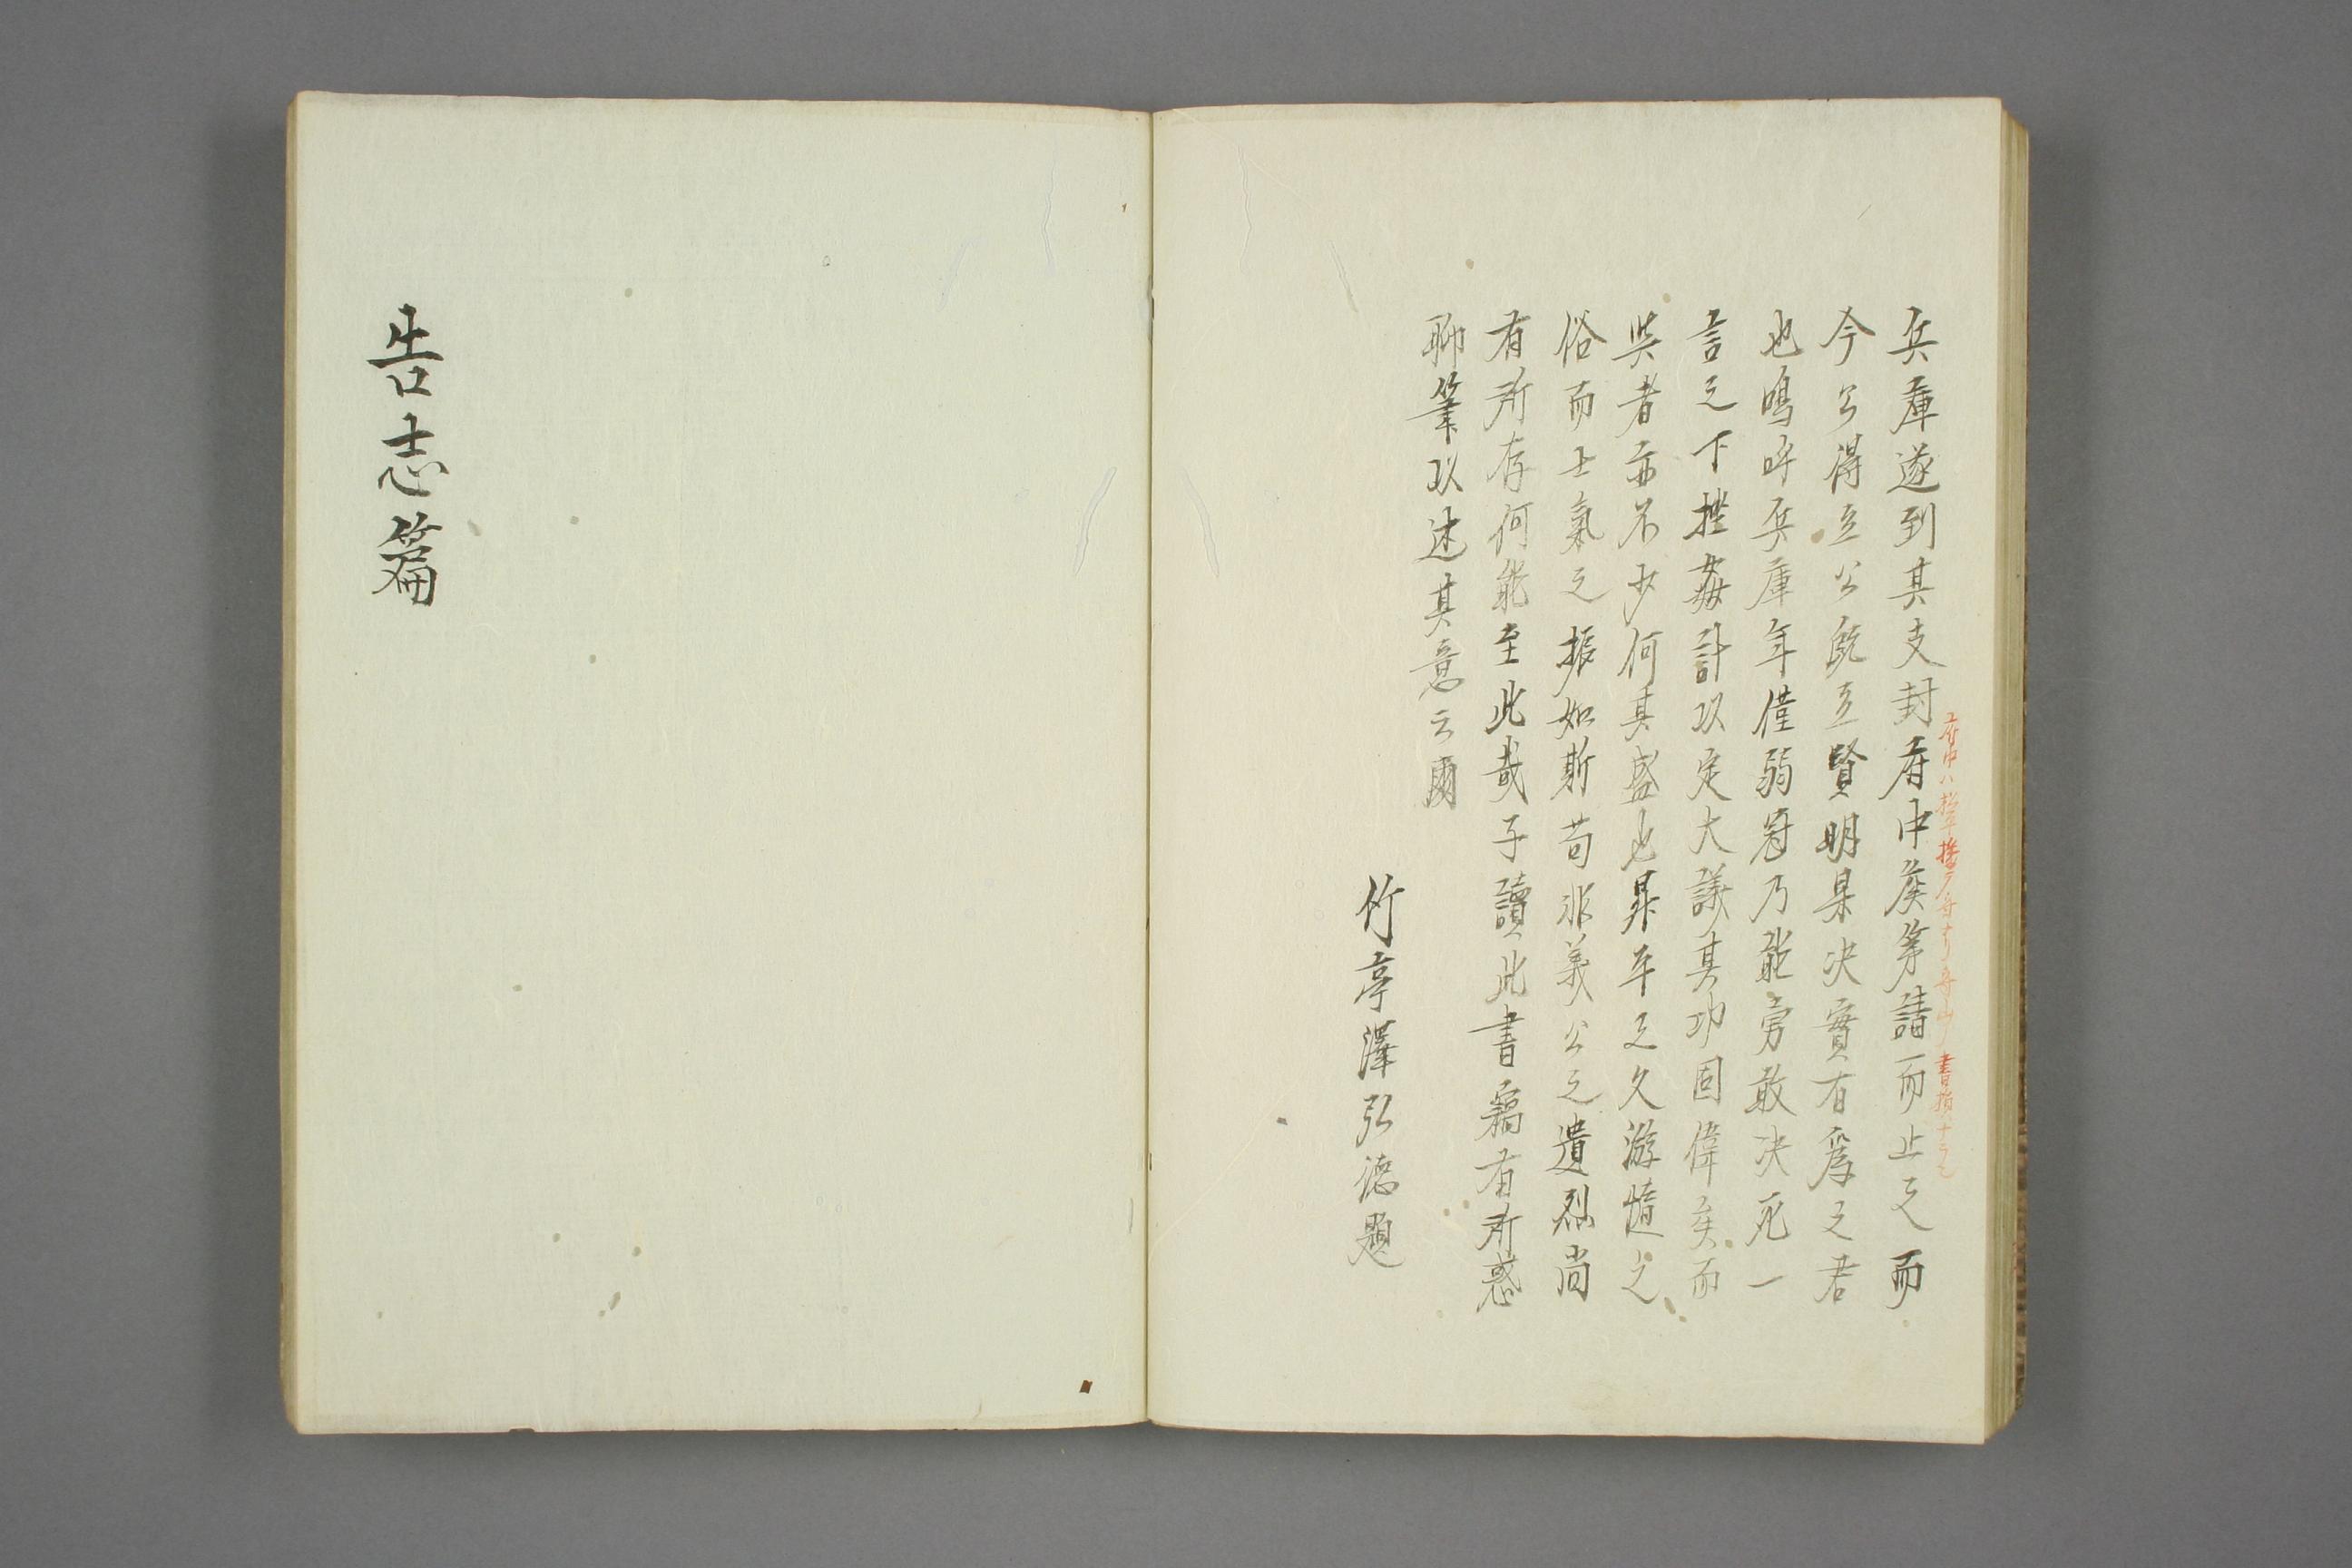 兵庫遂到其支封府中侯第請而止之而
今公得立公既立賢明果決實有為之君
也嗚呼兵庫年僅弱冠乃能旁敢決死一
言之下挫姦計以定大議其功固偉矣而
吳者亦不少何其盛也昇平之久游惰之
俗而士氣之振如斯苟非義公之遺烈尚
有所存何能至此哉予讀此書竊有所惑
聊筆以述其意云爾
竹亭澤弘德題
告志篇